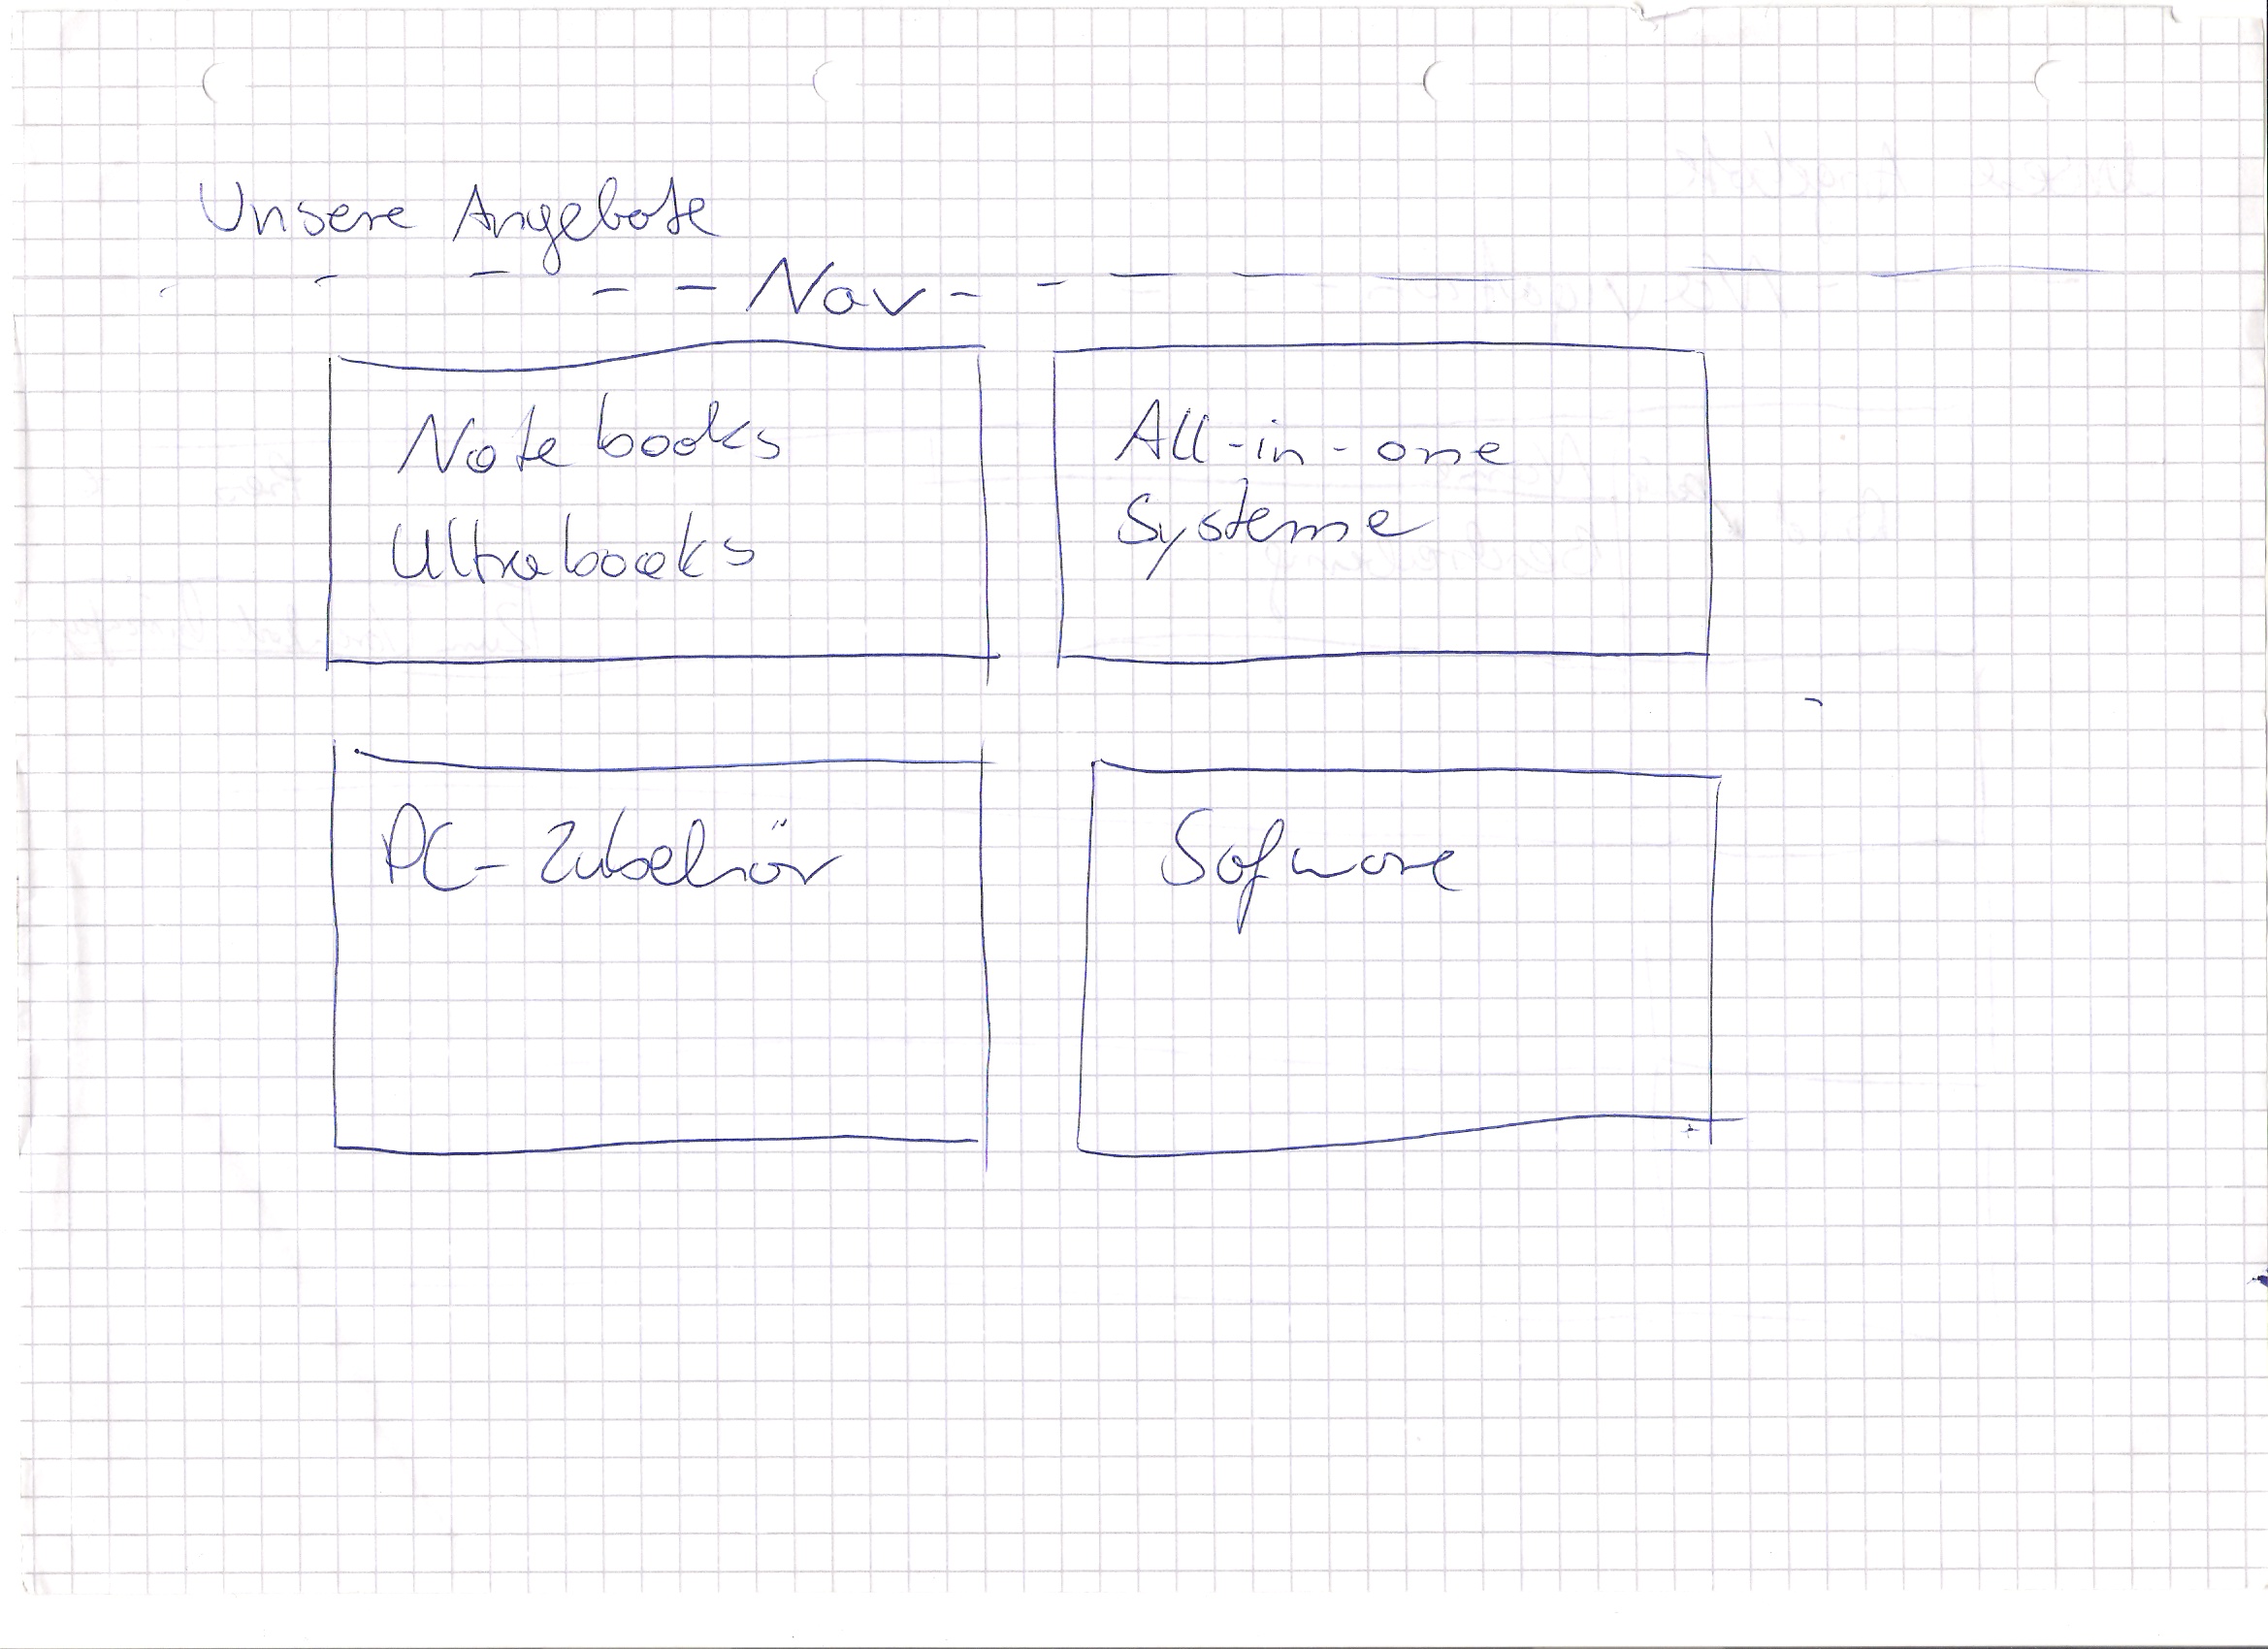 Unsere Angebote
- - - - - Nav - - - - - - -
Notebooks
Ultrabooks
All-in-one
Systeme
PC-Zubehör
Sofware